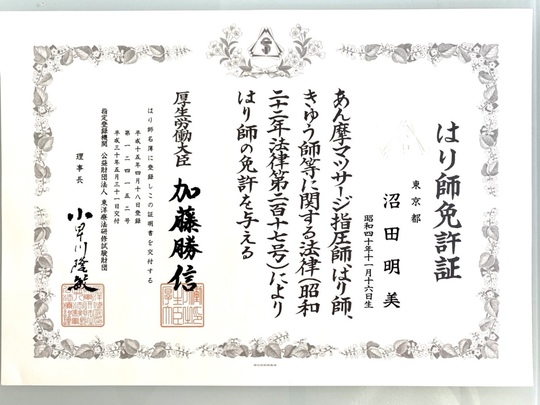 はり師免許証
東京都
沼田明美
昭和四十年十一月十六日生
あん摩マツサージ指圧師、はり師、
きゆう師等に関する法律(昭和
二十二年法律第二百十七号)により
はり師の免許を与える
厚生労働大臣 加藤勝信
はり師名簿に登録しこの証明書を交付する
平成十五年四月十八日登録
第一二四一五二号
平成三十年五月三十一日交付
指定登録機関 公益財団法人 東洋療法研修試験財団
理事長 小早川隆敏